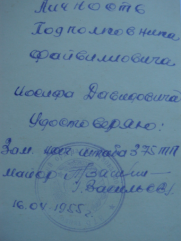 Личность
Подполковника
Файвиловича
Иосифа Давидовича
Удостоверяю:
Зам. нач. штаба 375 тап
майор
/Васильев/
16.04.1955 г.